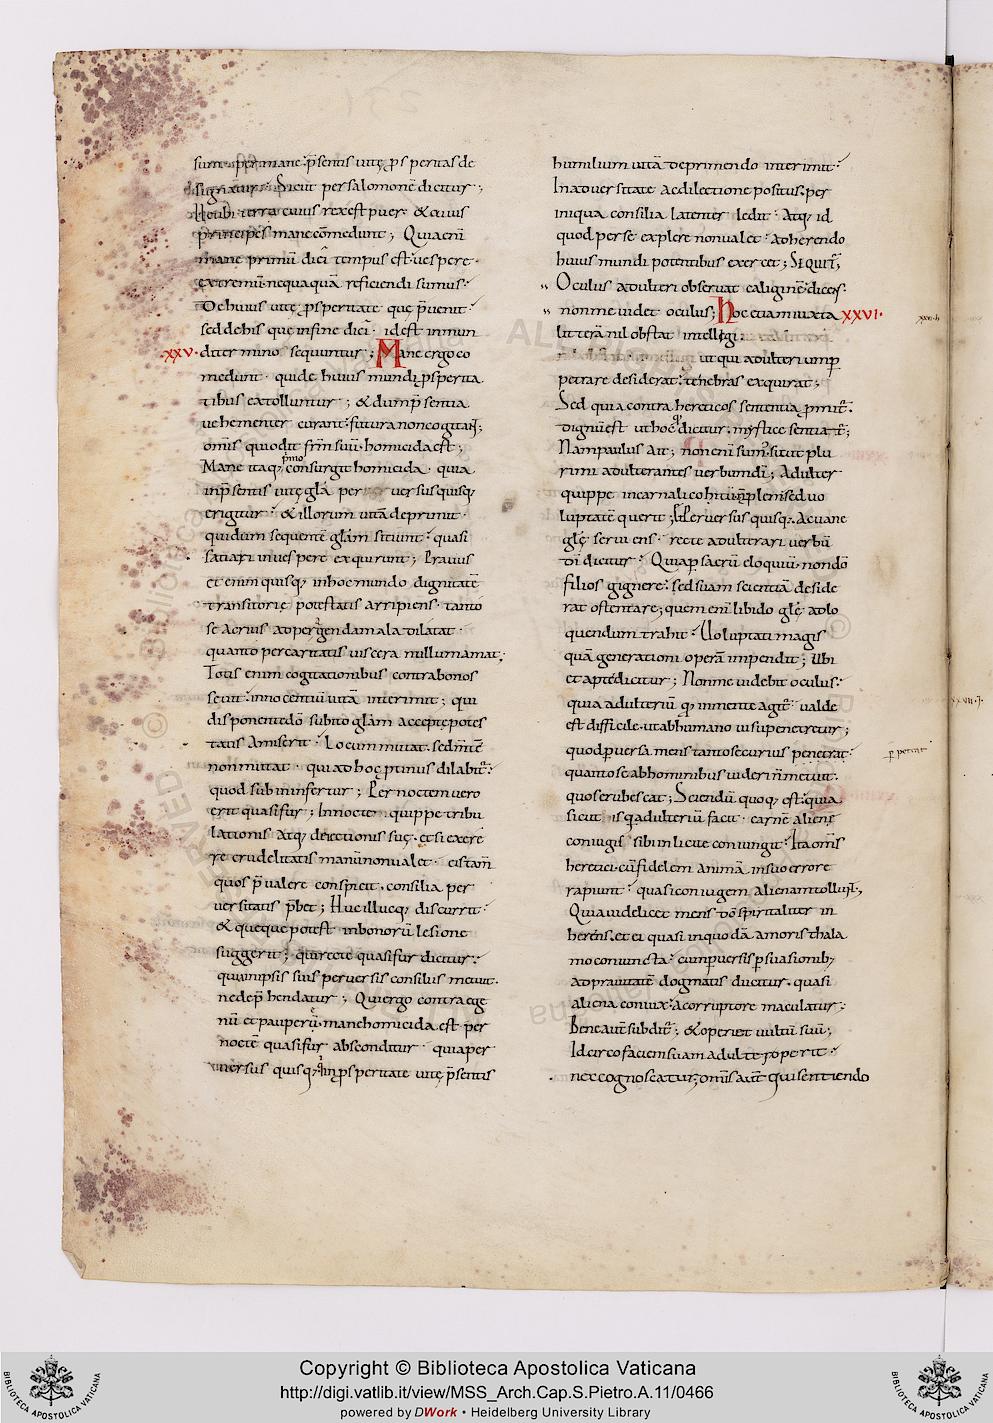 sunt. per mane. p̄sentis uitę ꝓsperitas de
signatur. Sicut per salomonē dicitur;
Ue tibi terra cuius rex est puer. & cuius
principes mane cōmedunt; Quia eni
mane primū diei tempus est. uespere
extremū. nequaquā reficiendi sumus.
De huius uitę ꝓsperitate que p̄uenit.
sed de his que in fine diei. id est in mun
XXV. di termino sequuntur; Mane ergo co
medunt. qui de huius mundi ꝓsperita
tibus extolluntur; & dum p̄sentia
uehementer curant. futura non cogitant;
omīs qui odit frm̄ suū. homicida est;
Mane itaq; primo consurgit homicida. quia
in p̄sentis uitę glā peruersus quisq;
erigitur. & illorum uitā deprimit.
qui dum sequentē glām sitiunt. quasi
satiari in uespere exquirunt; Prauus
etenim quisq; in hoc mundo dignitatē
transitorie potestatis arripiens. tanto
se acrius ad pergenda mala dilatat.
quanto per caritatis uiscera nullum amat.
Totis enim cogitationibus contra bonos
seuit. innocentiū uitā interimit; qui
disponente dō subito glām acceptę potes
tatis amiserit. Locum mutat. sed mtē
non mutat. qui ad hoc ꝓtinus dilabit.
quod subinfertur; Per noctem uero
erit quasi fur; In nocte quippe tribu
lationis atq; deiectionis suę. et si exere
re crudelitatis manū non ualet. eis tam̄
quos p̄ualere conspicit. consilia per
uersitatis p̄bet; Huc illucq; discurrit.
& queque potest in bonorū lesione
suggerit; qui recte quasi fur dicitur.
quia in ipsis suis peruersis consiliis metuit.
ne dep̄hendatur; Qui ergo contra ege
nū et pauperū. mane homicida est per
noctē quasi fur absconditur. quia per
uersus quisq; in ꝓsperitate uitę p̄sentis
humilium uitā deprimendo interimit.
In aduersitate ac deiectione positus. per
iniqua consilia latenter ledit. Atq; id
quod per se explere non ualet. adherendo
huius mundi potentibus exercet; SEQUIT̄;
Oculus adulteri obseruat caliginē. dicens.
non me uidet oculus; Hoc etiam iuxta XXVI.
litterā nil obstat intellegi.
ut qui adulteriū imp
petrare desiderat. tenebras exquirat;
Sed quia contra hereticos sententia ꝓmit̄.
dignū est ut hoc quod dicitur. mystice sentiat̄;
Nam paulus ait; non enī sumˀ sicut plu
rimi adulterantes uerbum dī; Adulter
quippe in carnali cohitu n̄ ꝓlem sed uo
luptatē querit; Et peruersus quisq;. ac uane
glę seruiens. recte adulterari uerbū
dī dicitur. Quia ꝑ sacrū eloquiū. non dō
filios gignere. sed suam scientiā deside
rat ostentare; quem enī libido glę ad lo
quendum trahit. Uoluptati magis
quā generationi operā impendit; Ubi
et apte dicitur; Non me uidebit oculus.
quia adulteriū qd in mente agit. ualde
est difficile. ut ab humano uisu penetretur;
quod ꝑuersa mens tanto securius penetrat.
quanto se ab hominibus uideri n̄ metuit.
quos erubescat; Sciendū quoq; est. quia
sicut is qui adulteriū facit. carnē alienę
coniugis sibi inlicite coniungit. Ita omīs
heretici. cū fidelem animā in suo errore
rapiunt. quasi coniugem alienam tollunt;
Quia uidelicet mens dō spiritaliter in
herens. et ei quasi in quodā amoris thala
mo coniuncta. cum ꝑuersis ꝑsuasionib;
ad prauitatē dogmatis ducitur. quasi
aliena coniux. a corruptore maculatur;
Bene autē subdit̄; & operiet uultū suū;
Idcirco faciem suam adulter operit.
ne cognoscatur. omīs aut̄ qui sentiendo
Copyright © Biblioteca Apostolica Vaticana
http://digi.vatlib.it/view/MSS_Arch.Cap.S.Pietro.A.11/0466
powered by DWork • Heidelberg University Library
BIBLIOTECA APOSTOLICA VATICANA
BIBLIOTECA APOSTOLICA VATICANA